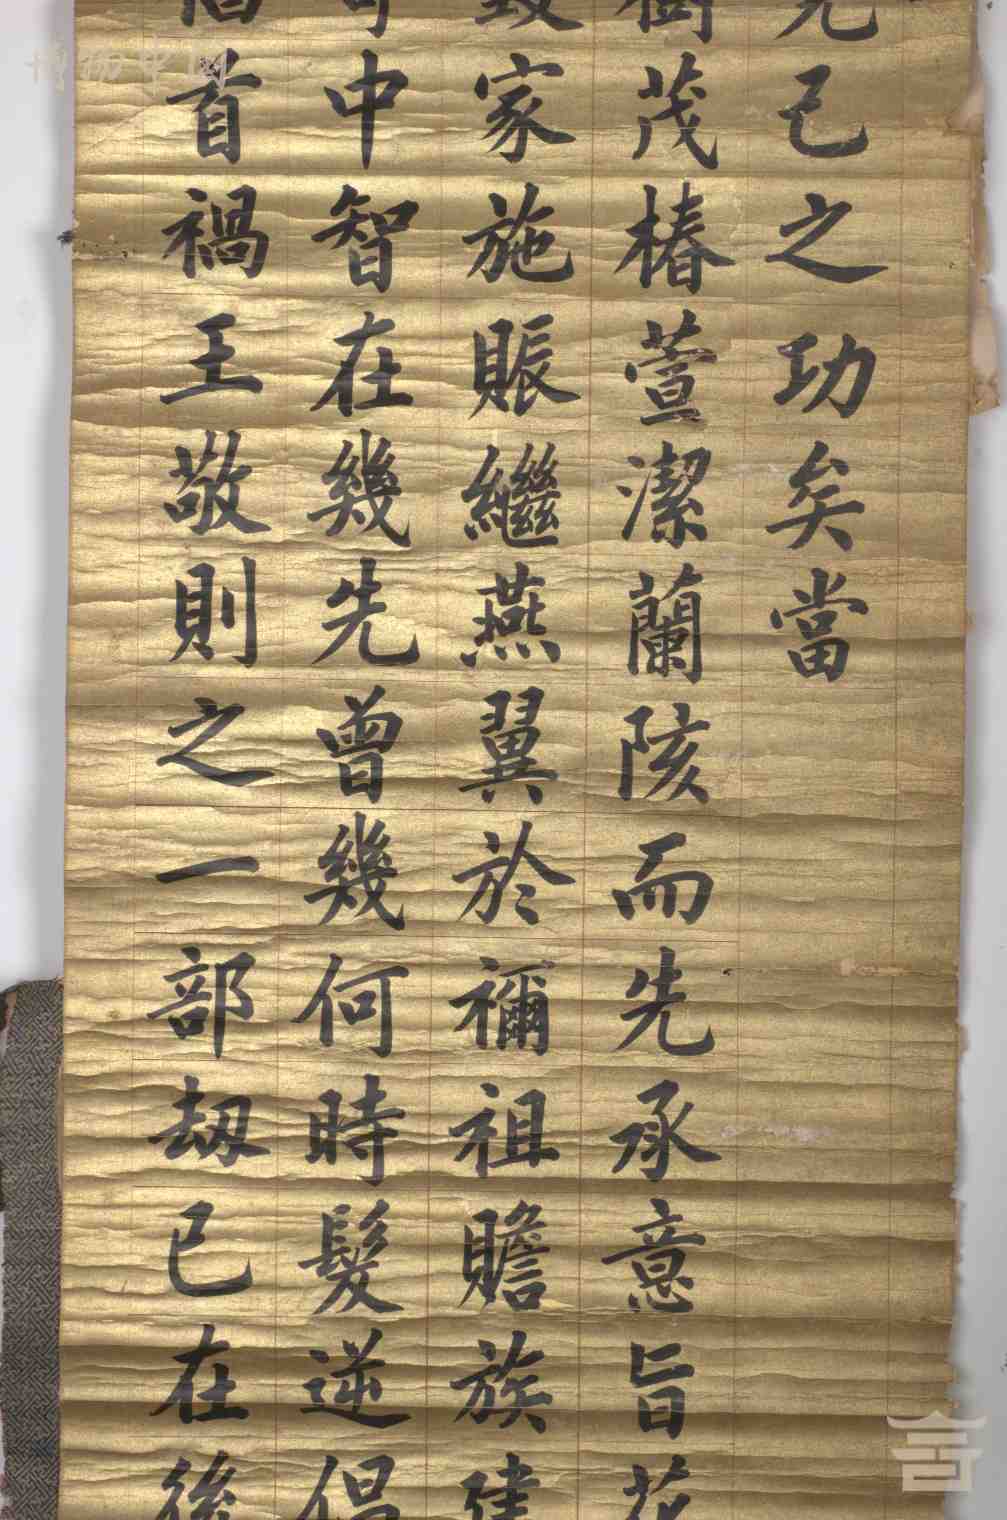 克己之功矣當
樹茂椿萱潔蘭陔而先承意旨花
致家施賑繼燕翼於禰祖贍族建
中智在幾先曾幾何時髮逆倡
首禍王敬則之一部劫已在後
博物中国